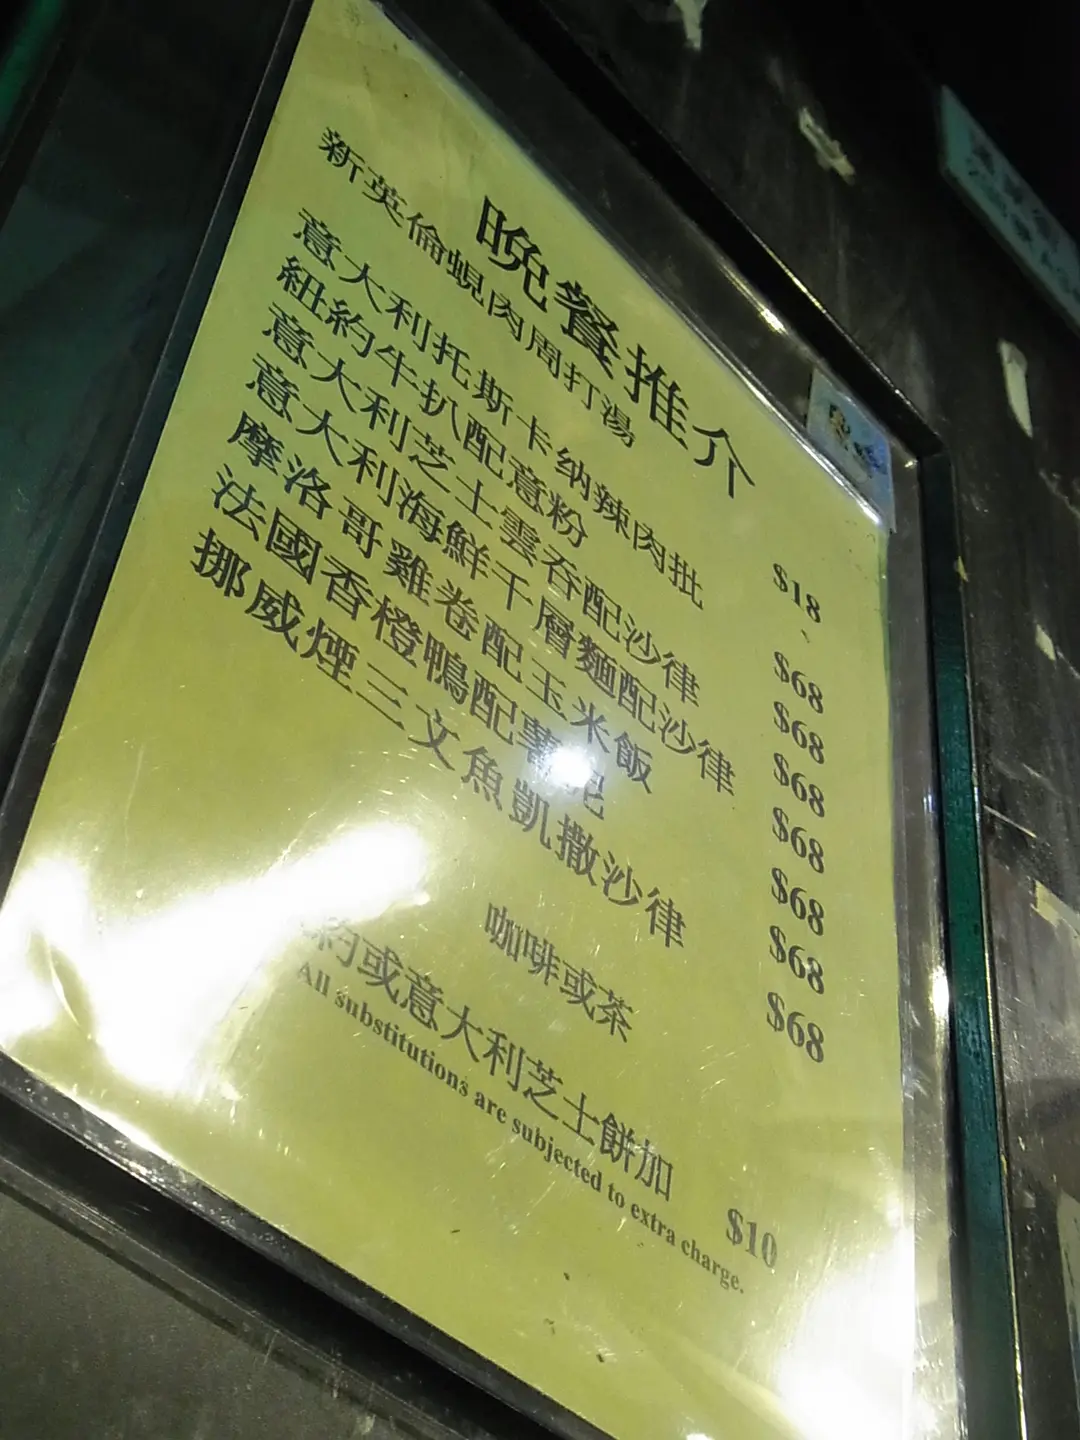 晚餐推介
新英倫蜆肉周打湯 $18
意大利托斯卡纳辣肉批 $68
紐約牛扒配意粉 $68
意大利芝士雲吞配沙律 $68
意大利海鮮千層麵配沙律 $68
摩洛哥雞卷配玉米飯 $68
法國香橙鴨配薯泥 $68
挪威煙三文魚凱撒沙律 $68
咖啡或茶
約或意大利芝士餅加 $10
All substitutions are subjected to extra charge.